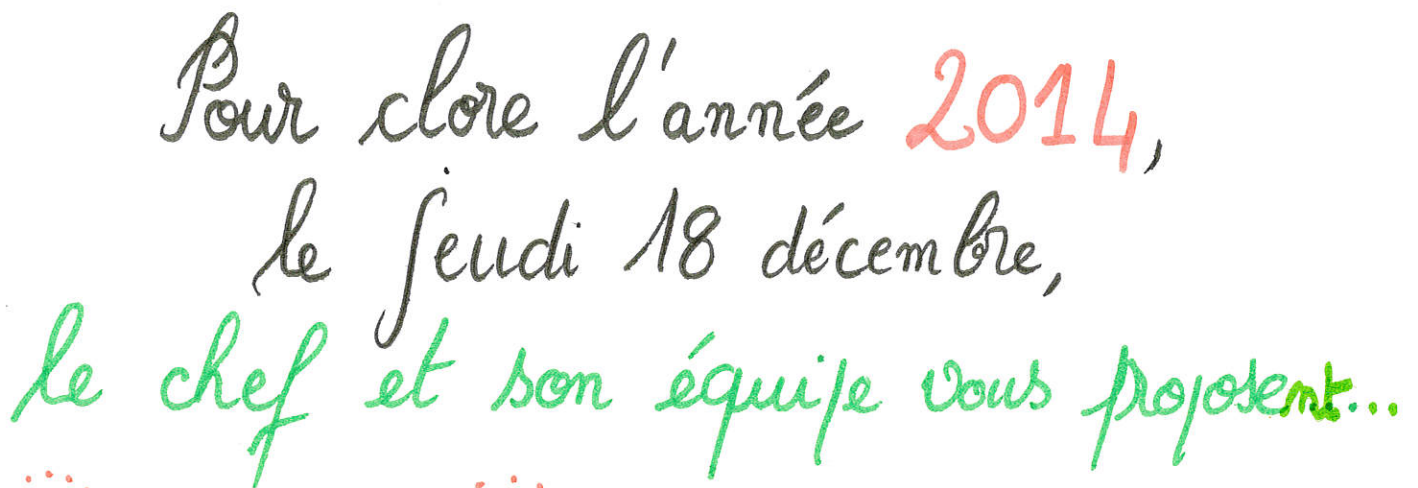 Pour clore l'année 2014,
le jeudi 18 décembre,
le chef et son équipe vous proposent...